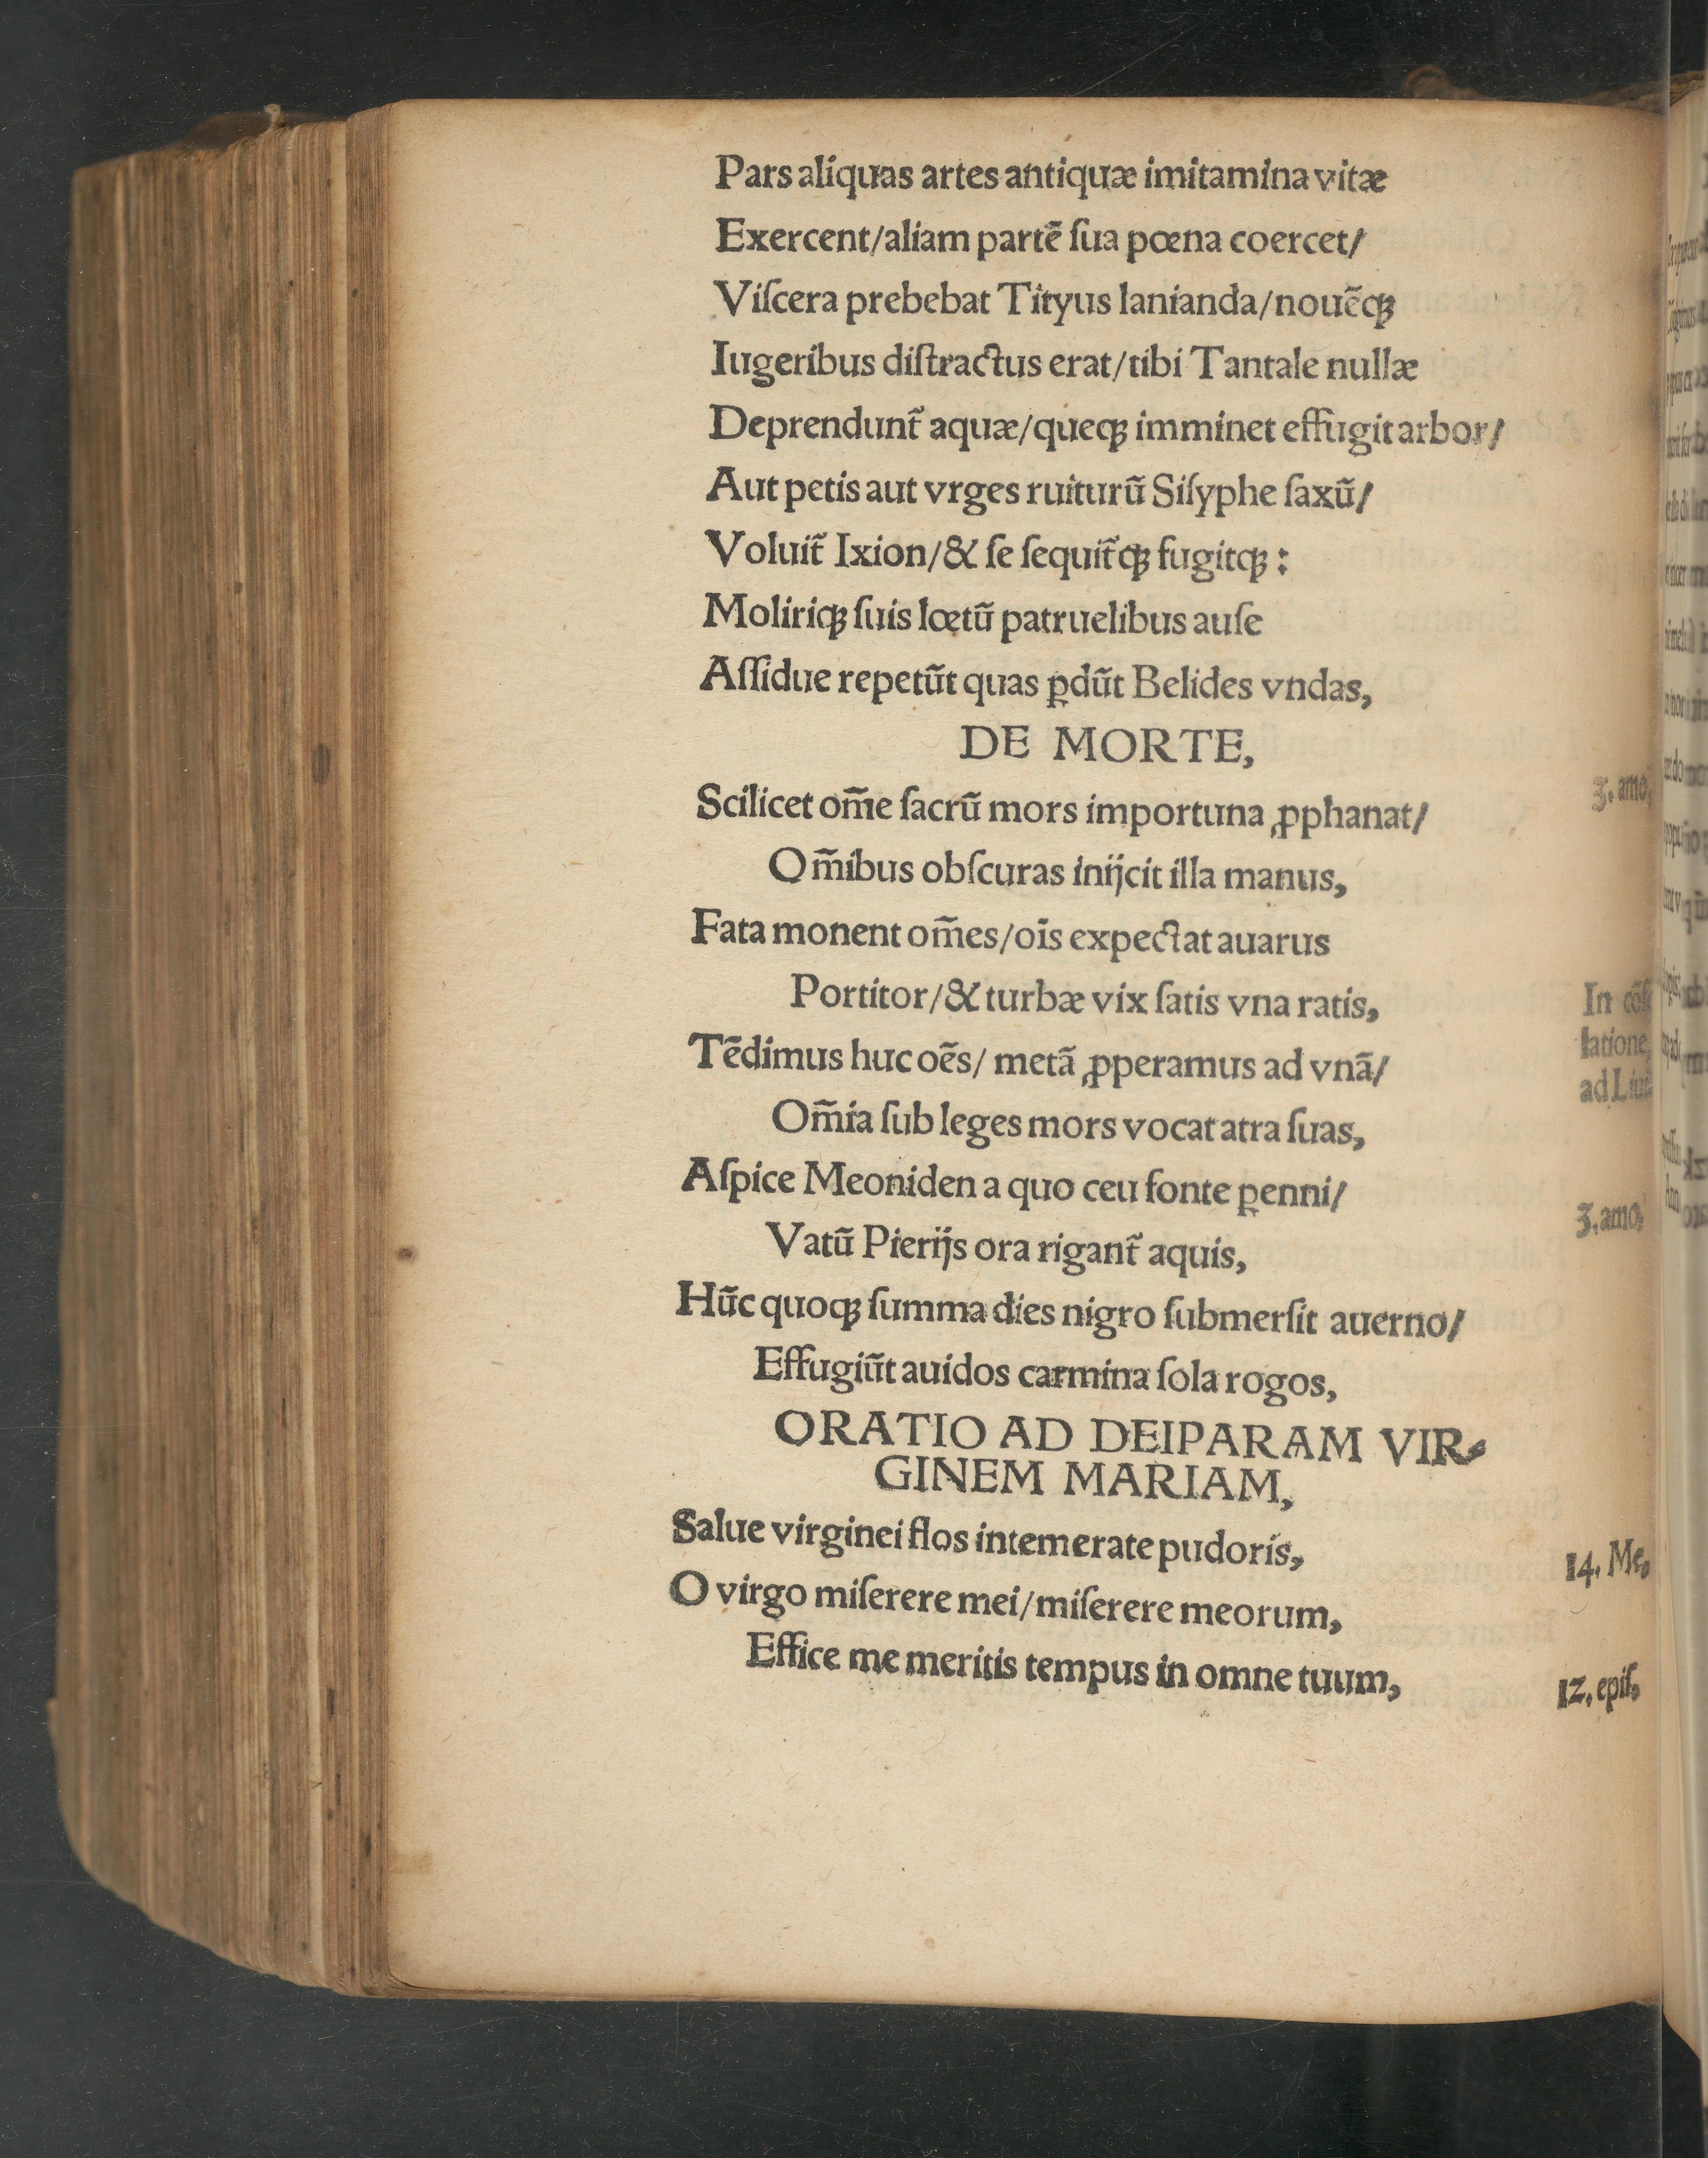 Pars aliquas artes antiquæ imitamina vitæ
Exercent/aliam partẽ ſua pœna coercet/
Viſcera prebebat Tityus lanianda/nouẽqꝫ
Iugeribus diſtractus erat/tibi Tantale nullæ
Deprendunt᷑ aquæ/queqꝫ imminet effugit arbor/
Aut petis aut vrges ruiturũ Siſyphe ſaxũ/
Voluit᷑ Ixion/& ſe ſequit᷑qꝫ fugitqꝫ:
Moliriqꝫ ſuis lœtũ patruelibus auſe
Aſſidue repetũt quas ꝑdũt Belides vndas,
DE MORTE,
Scilicet om̃e ſacrũ mors importuna ꝓphanat/
3. amo,
Om̃ibus obſcuras inijcit illa manus,
Fata monent om̃es/oĩs expectat auarus
Portitor/& turbæ vix ſatis vna ratis,
In cõſ
Tẽdimus huc oẽs/ metã ꝓperamus ad vnã/
latione,
ad Liui
Om̃ia ſub leges mors vocat atra ſuas,
Aſpice Meoniden a quo ceu fonte ꝑenni/
3. amo,
Vatũ Pierijs ora rigant᷑ aquis,
Hũc quoqꝫ ſumma dies nigro ſubmerſit auerno/
Effugiũt auidos carmina ſola rogos,
ORATIO AD DEIPARAM VIR⸗
GINEM MARIAM,
Salue virginei flos intemerate pudoris,
14. Me,
O virgo miſerere mei/miſerere meorum,
Effice me meritis tempus in omne tuum,
12. epiſ,